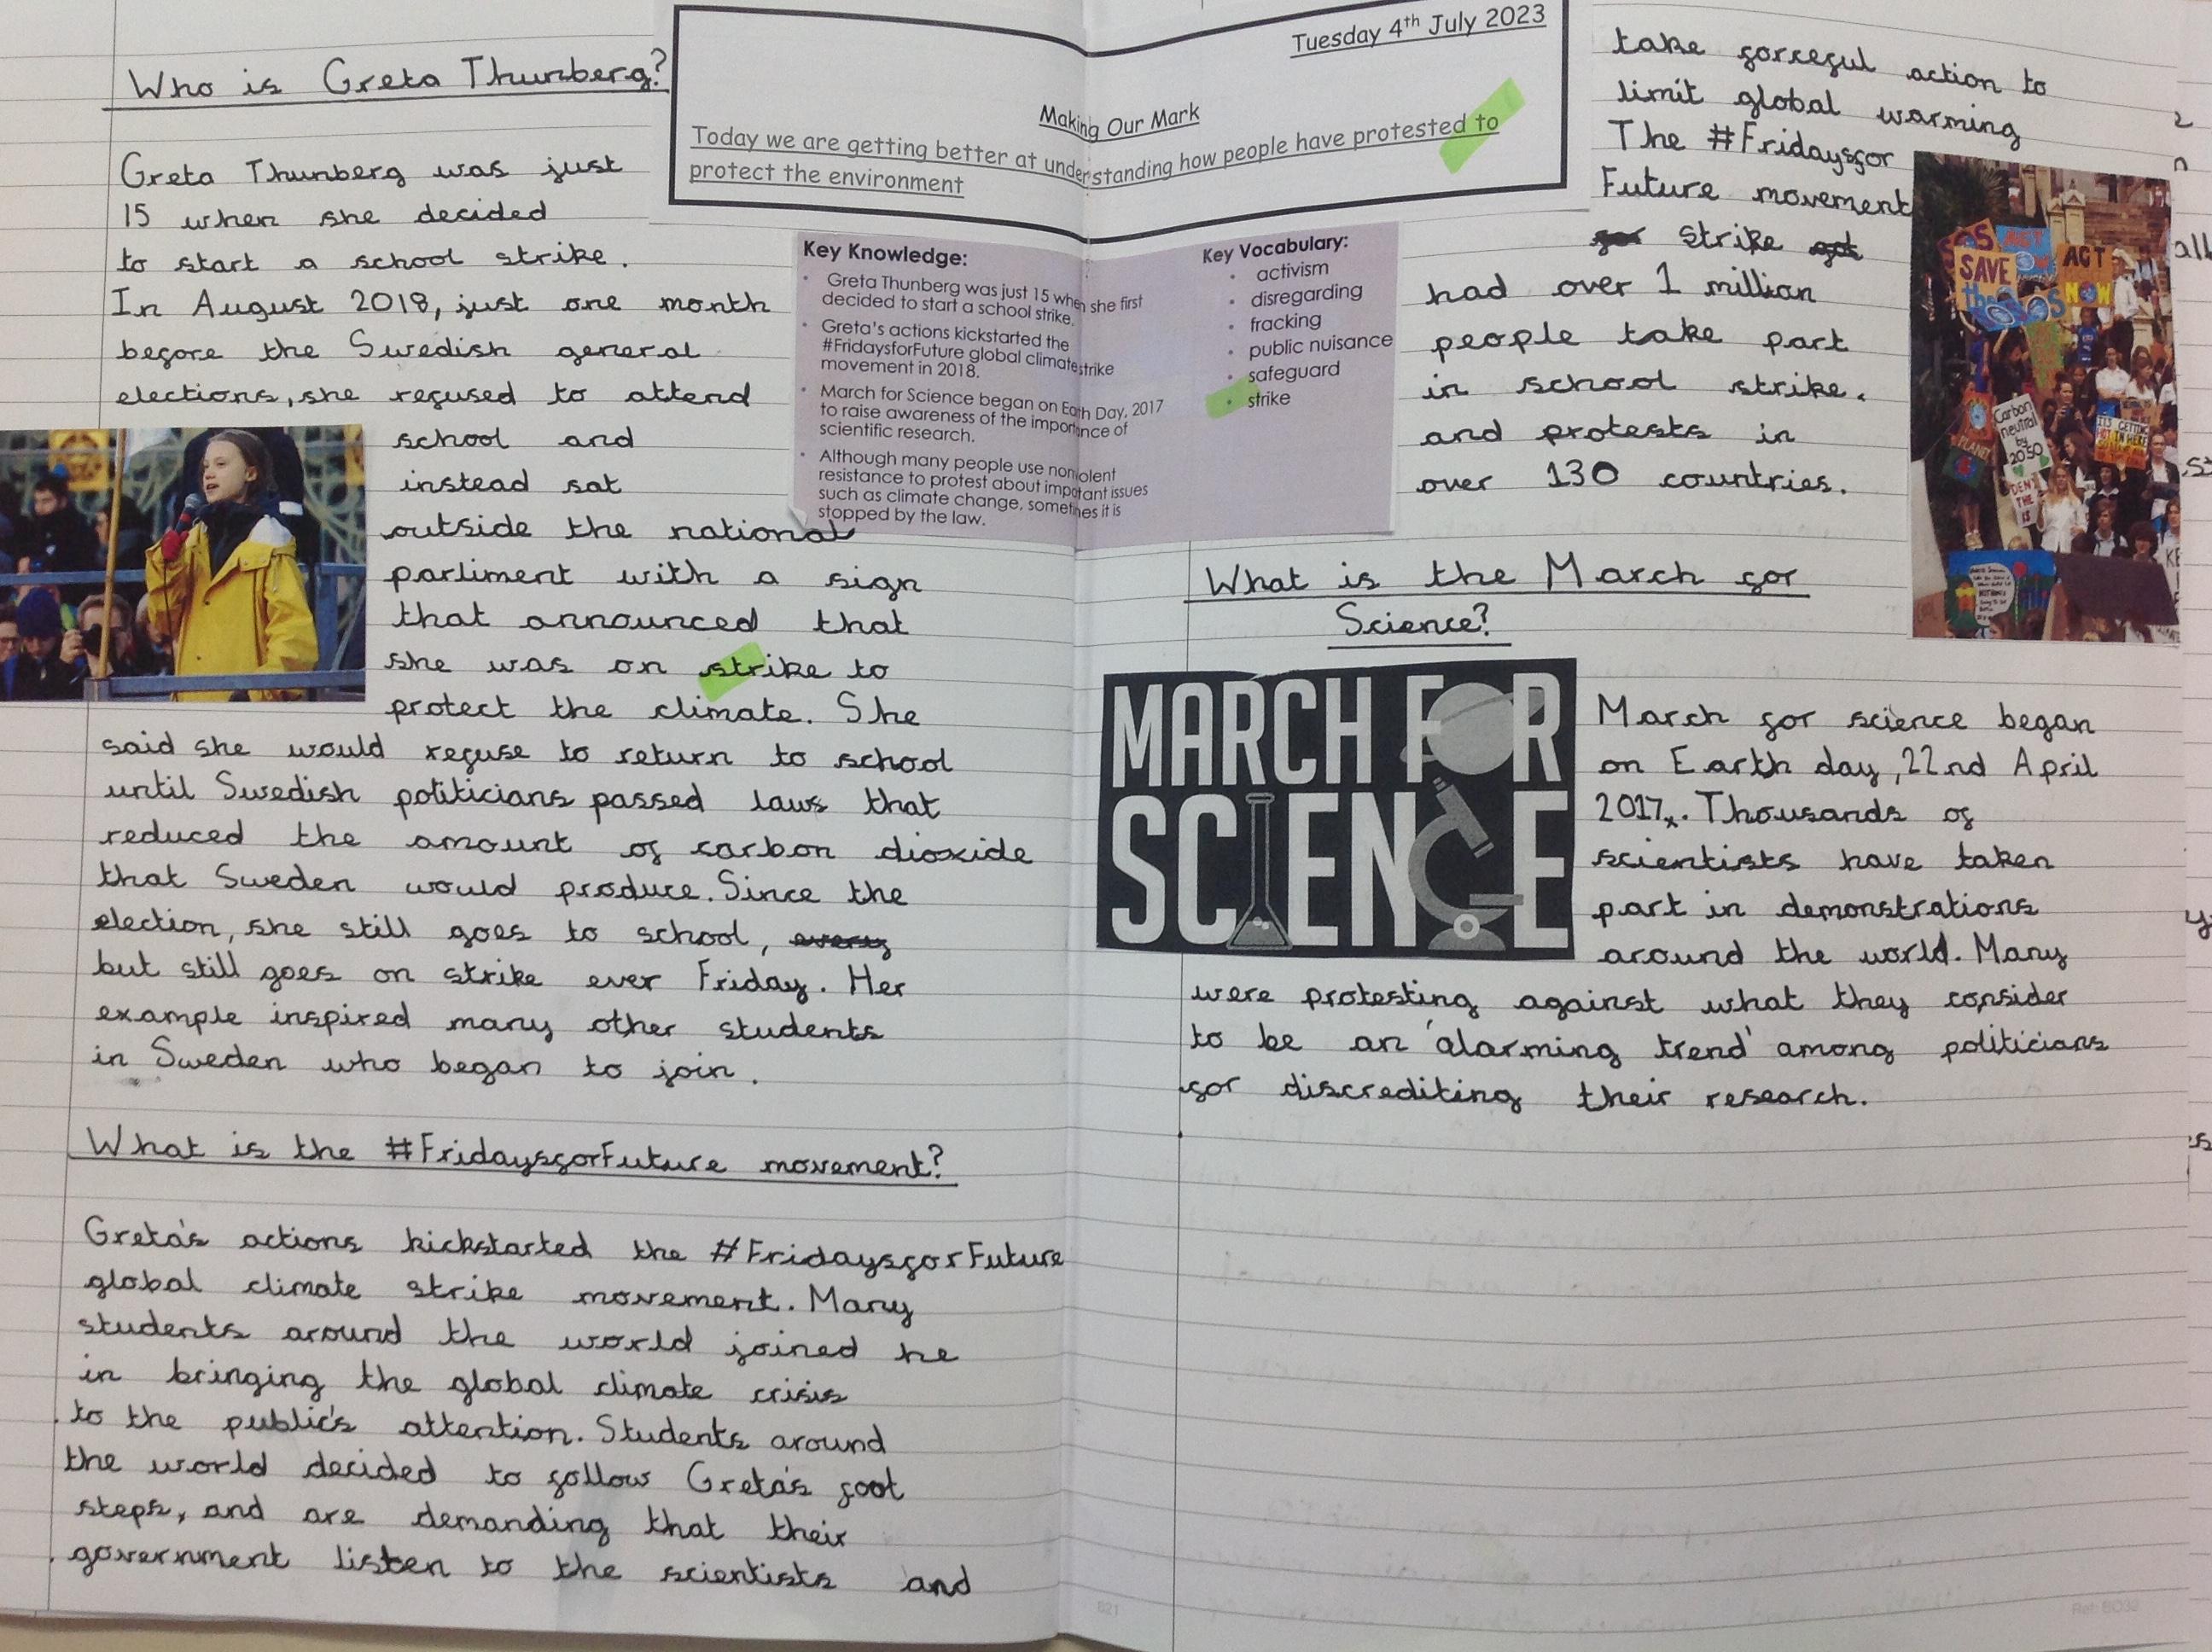 Tuesday 4th July 2023
Making Our Mark
Today we are getting better at understanding how people have protested to
protect the environment
Key Knowledge:
Greta Thunberg was just 15 when she first
decided to start a school strike.
Greta's actions kickstarted the
#FridaysforFuture global climate strike
movement in 2018.
March for Science began on Earth Day, 2017
to raise awareness of the importance of
scientific research.
Although many people use nonviolent
resistance to protest about important issues
such as climate change, sometimes it is
stopped by the law.
Key Vocabulary:
activism
disregarding
fracking
public nuisance
safeguard
strike
Who is Greta Thunberg?
Greta Thunberg was just
15 when she decided
to start a school strike.
In August 2018, just one month
before the Swedish general
elections, she refused to attend
school and
instead sat
outside the national
parliment with a sign
that announced that
she was on strike to
protect the climate. She
said she would refuse to return to school
until Swedish politicians passed laws that
reduced the amount of carbon dioxide
that Sweden would produce. Since the
election, she still goes to school, every
but still goes on strike ever Friday. Her
example inspired many other students
in Sweden who began to join.
What is the #FridaysforFuture movement?
Greta's actions kickstarted the #FridaysforFuture
global climate strike movement. Many
students around the world joined he
in bringing the global climate crisis
to the public's attention. Students around
the world decided to follow Greta's foot
steps, and are demanding that their
government listen to the scientists and
take forceful action to
limit global warming
The #Fridaysfor
Future movement
for strike
had over 1 million
people take part
in school strike.
and protests in
over 130 countries.
SAVE
ACT
NOW
Carbon
neutral
by
2050
What is the March for
Science?
MARCH FOR
SCIENCE
March for science began
on Earth day, 22nd April
2017. Thousands of
scientists have taken
part in demonstrations
around the world. Many
were protesting against what they consider
to be an 'alarming trend' among politicians
for discrediting their research.
821